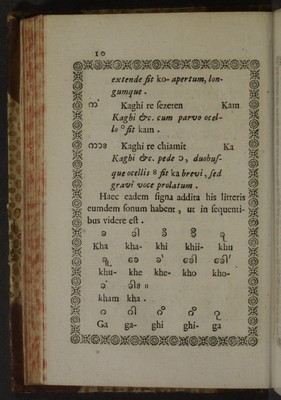 10
extende fit ko- apertum, lon-
gumque.
ကံ Kaghi re ſezeren Kam
Kaghi &c. cum parvo ocel-
lo ° fit kam.
Kaghi re chiamit Ka
Kaghi &c. pede ɔ, duobuſ-
que ocellis 8 fit ka brevi, ſed
gravi voce prolatum.
Haec eadem ſigna addita his litteris
eumdem ſonum habent, ut in ſequenti-
bus videre eſt.
ခ ခါ ခိ ခီ ခု
Kha kha- khi khii- khu
ခူ ခေ ခဲ ခေါ ခေါ်
khu- khe khe- kho kho-
ခံ ခါး ။
kham kha.
ဂ ဂါ ဂိ ဂီ ဂု
Ga ga- ghi ghi- ga